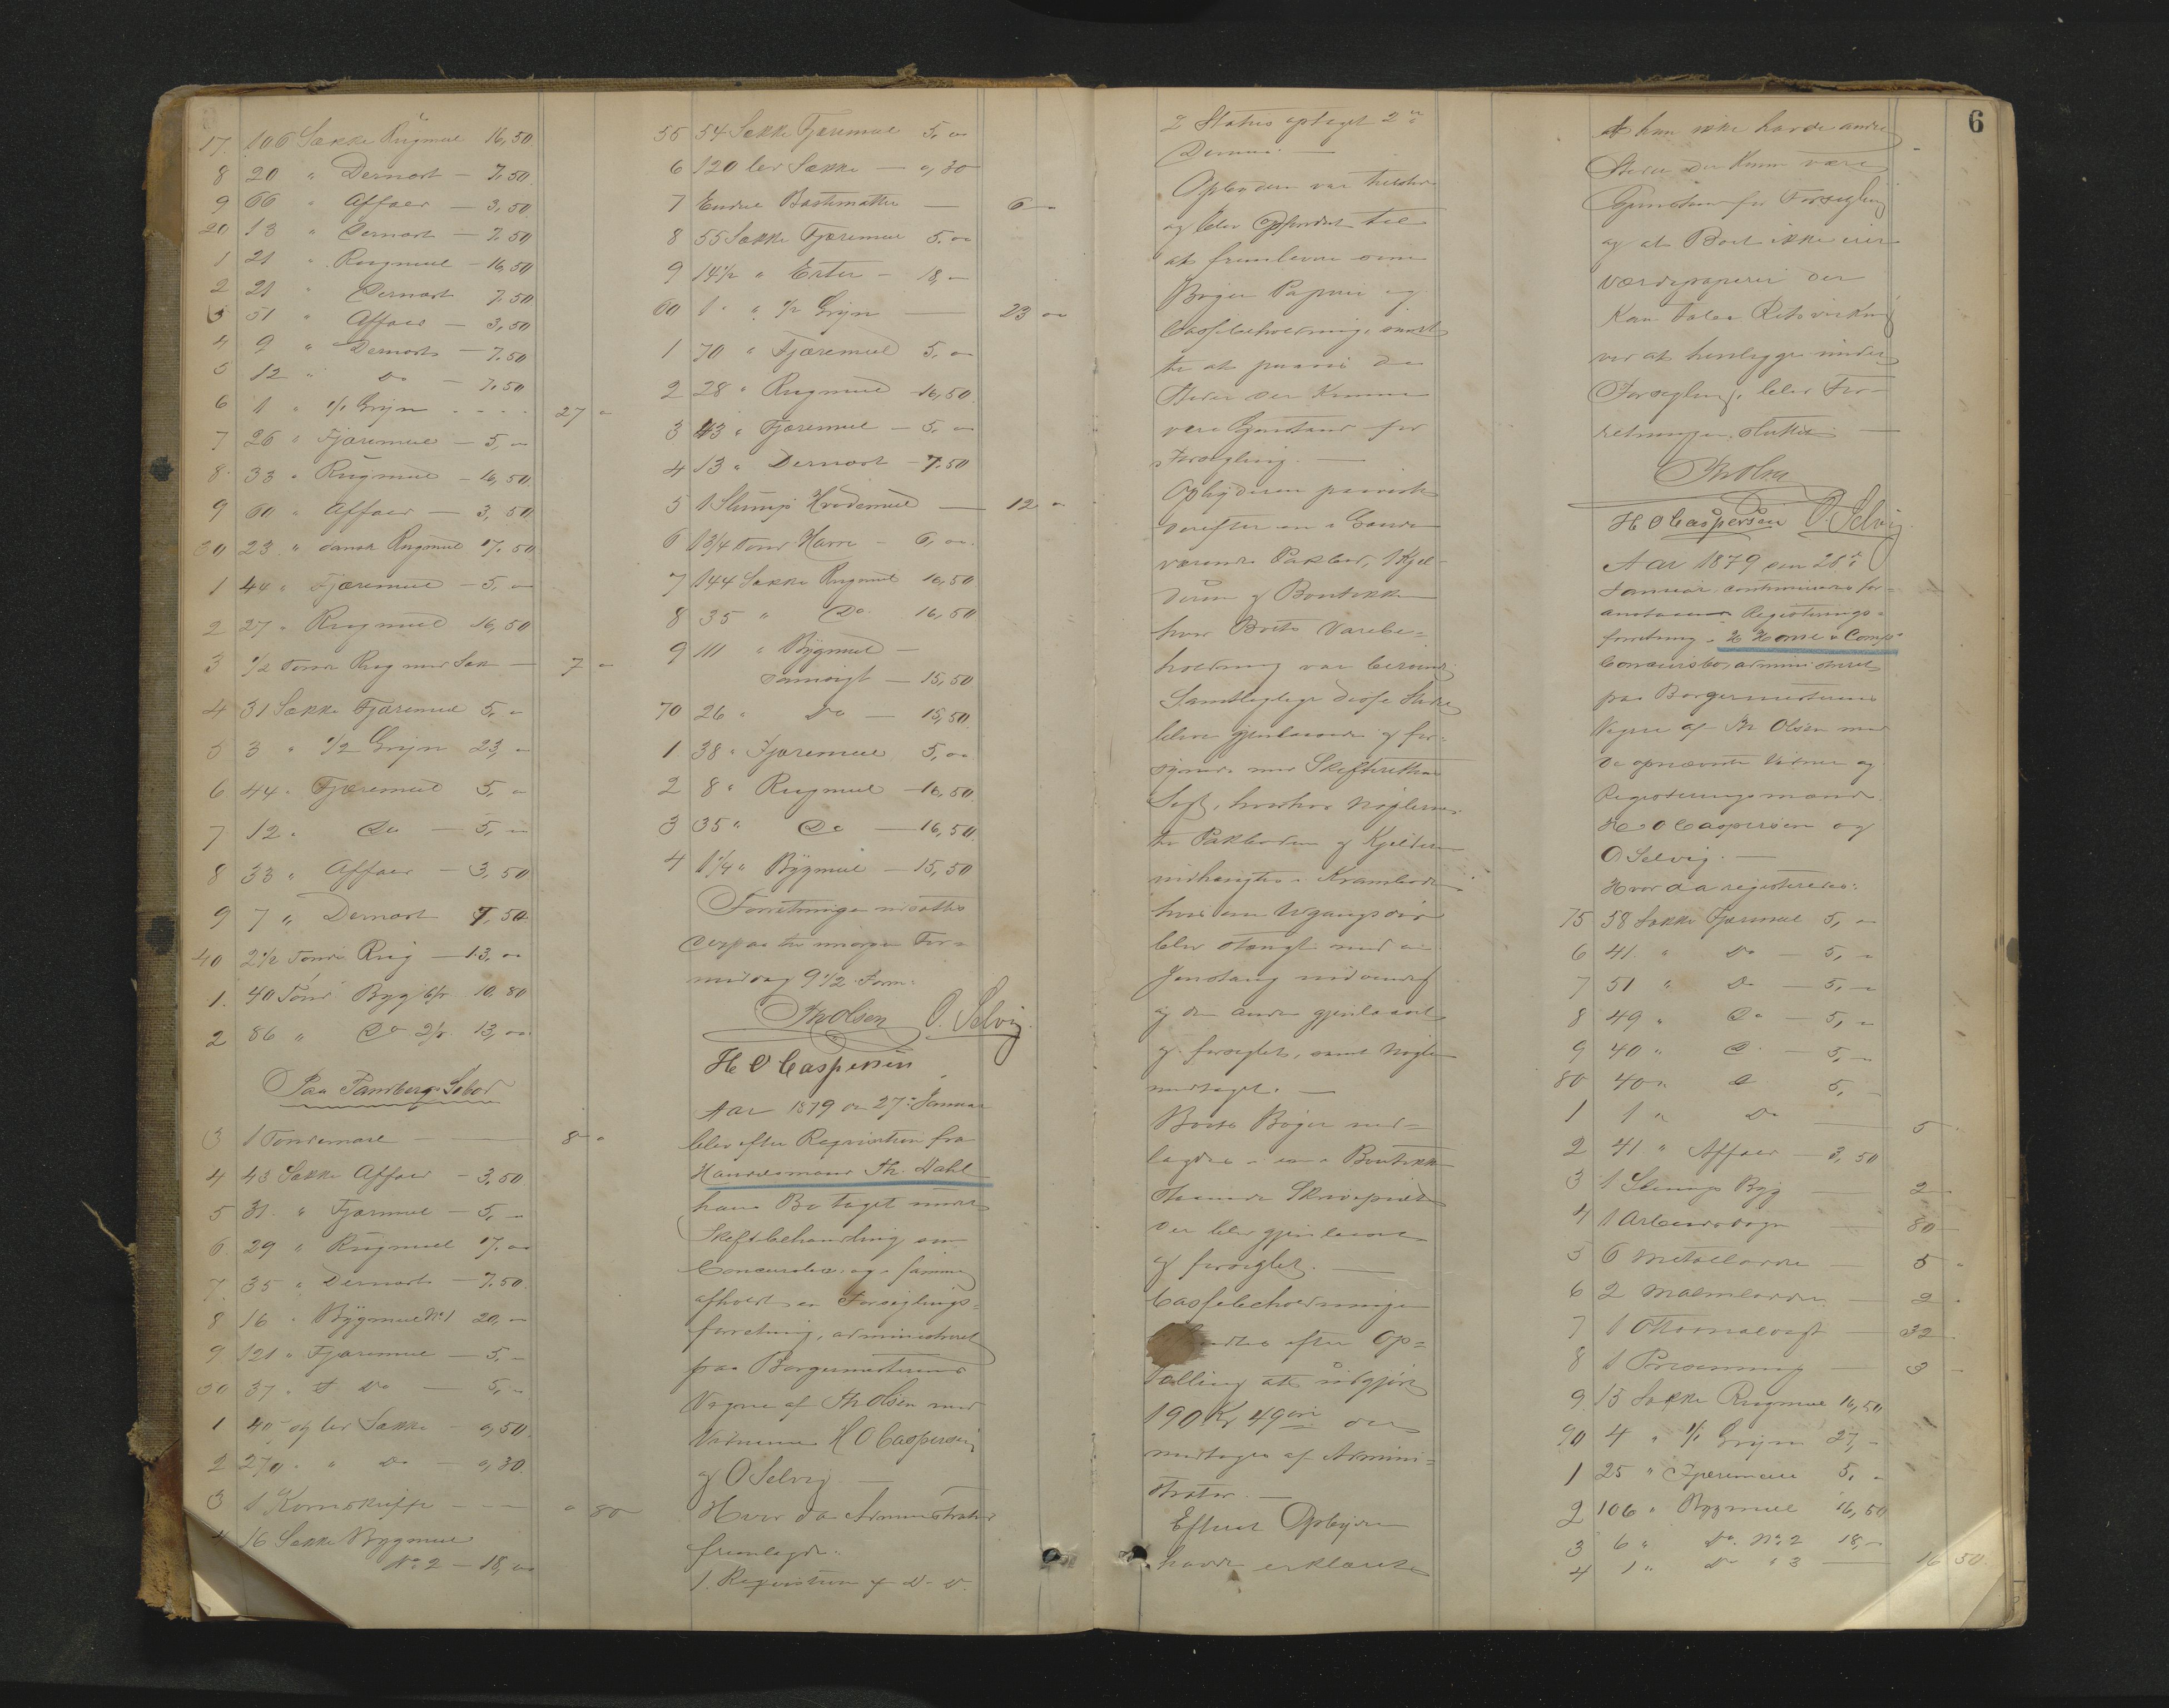 17. 106 Sække Rugmeel 16,50
8 20 " Dernort — 7,50
9 66 " Affaer — 3,50
20 13 " Dernort — 7,50
1 21 " Rugmeel — 16,50
2 21 " Dernort 7,50
3 51 " Affaer — 3,50
4 9 " Dernort — 7,50
5 12 " Do — 7,50
6 1 " 1/1 Gryn - - - - 27 "
7 26 " Fjæremeel — 5, "
8 33 " Rugmeel — 16,50
9 60 " Affaer — 3,50
30 23 " dansk Rugmeel 17,50
1 44 " Fjæremeel — 5, "
2 27 " Rugmeel 16,50
3 1/2 Tønde Rug med Sæk — 7 "
4 31 Sække Fjæremeel 5, "
5 3 " 1/2 Gryn 23, "
6 44 " Fjæremeel 5, "
7 12 " Do — 5, "
8 33 " Affaer — 3,50
9 7 " Dernort 7,50
40 2 1/2 Tønde Rug — 13, "
1. 40 Tønd Byg 6/r 10,80
2 86 " Do 2/r 13, "
Paa Sandberg Søbod
3 1 Tøndemaal — 8 "
4 43 Sække Affaer — 3,50
5 31 " Fjærmeel — 5, "
6 29 " Rugmeel 17, "
7 35 " Dernort — 7,50
8 16 " Bygmeel No 1 20, "
9 121 " Fjæremeel — 5, "
50 37 " Do — 5, "
1 40 Sække — 0,50
2 270 " " Do — 0,30
3 1 Kornskuffe — " 80
4 16 Sække Bygmeel
No 2 — 18, "
55 54 Sække Fjæremeel 5, "
6 120 lev Sække — 0,30
7 Endeel Bastmatter — 6 "
8 55 Sække Fjæremeel 5, "
9 14 1/2 " Erter — 18, "
60 1 " 1/2 Gryn — 23 "
1 70 " Fjæremeel 5, "
2 28 " Rugmeel 16,50
3 43 " Fjæremeel — 5, "
4 13 " Dernort — 7,50
5 1 Slump Hvedemeel — 12 "
6 1 3/4 Tønd Havre — 6, "
7 144 Sække Rugmeel 16,50
8 35 " Do 16,50
9 111 " Bygmeel —
— 15,50
70 26 " Do — 15,50
1 38 " Fjæremeel 5, "
2 8 " Rugmeel — 16,50
3 35 " Do — 16,50
4 1 1/4 " Bygmeel — 15,50
Forretningen udsattes
derpaa til imorgen For-
middag 9 1/2 Form:
Th Olsen O. Selvig
H O Caspersen
Aar 1879 den 27de Januar
blev efter Requisition fra
Handelsmand Th. Dahl
hans Bo taget under
Skiftebehandling som
Concursbo og i samme
afholdt en Forseglings-
forretning, administreret
paa Borgermesterens
Vegne af Th Olsen med
Vidnerne H O Caspersen
og O Selvig —
Hvor da Administrator
fremlagde:
1. Requisition af D. D.
2 Status optaget 2de
Dennes. —
Opbyderen var tilstede
og blev opfordret til
at fremlevere sine
Bøger Papirer og
Cassebeholdning, samt
til at paavise de
Steder der kunne
være Gjenstand for
Forsegling. —
Opbyderen paaviste
derefter en i Gaarden
værende Pakbod, 1 Kjel-
derrum og Boutikken
hvor Boets Varebe-
holdning var beroende.
Samtlige disse Steder
bleve gjenlaasede og for-
synede med Skifterettens
Segl, hvorhos Nøglerne
til Pakboden og Kjelderen
nedhængtes i Kramboden
hvis ene Udgangsdør
blev stængt med en
Jernstang indvendig
og den anden gjenlaaset
og forseglet, samt Nøglen
medtaget. —
Boets Bøger ned-
lagdes i en i Boutikken
staaende Skrivepult
der blev gjenlaaset
og forseglet. —
Cassebeholdningen
efter Op-
tælling at udgjøre
190 Kr 49 øre der
modtoges af Admini-
strator. —
Efterat Opbyderen
havde erklæret
6
At han ikke havde andre
Steder der kunne være
Gjenstand for Forsegling
og at Boet ikke eier
Værdipapirer der
kan taale Retsvirkning
ved at henlægge under
Forsegling, blev For-
retningen sluttet —
Th Olsen
H O Caspersen O. Selvig
Aar 1879 den 28de
Januar continueredes for-
anstaaende Registrerings-
forretning i H Horne & Comps
Concursbo, administreret
paa Borgermesterens
Vegne af Th Olsen med
de opnævnte Vidner og
Registreringsmænd
H O Caspersen og
O Selvig. —
Hvor da registreredes:
75 58 Sække Fjæremeel 5, "
6 41 " Do — 5, "
7 51 " Do — 5, "
8 49 " Do — 5, "
9 40 " Do — 5, "
80 40 " Do 5, "
1 1 " Do — 5
2 41 " Affaer — 3,50
3 1 Slump Byg — 2
4 1 Arbeidsvogn — 80
5 6 Metallodder — 5 "
6 2 Malmlodder — 2 "
7 1 — 32
8 1 Presenning — 3
9 15 Sække Rugmeel 16,50
90 4 " 1/1 Gryn 27, "
1 25 " Fjæremeel 5, "
2 106 " Bygmeel 16,50
3 6 " Do No 2 18, "
4 1 " Do " 3 — 16 50